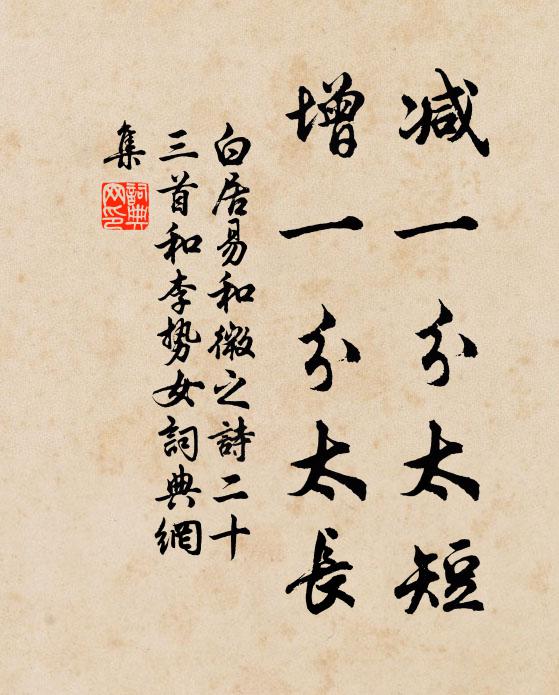 减一分太短
增一分太长
白居易和微之詩二十
三首和李势女詞典網
集
詞典
网印